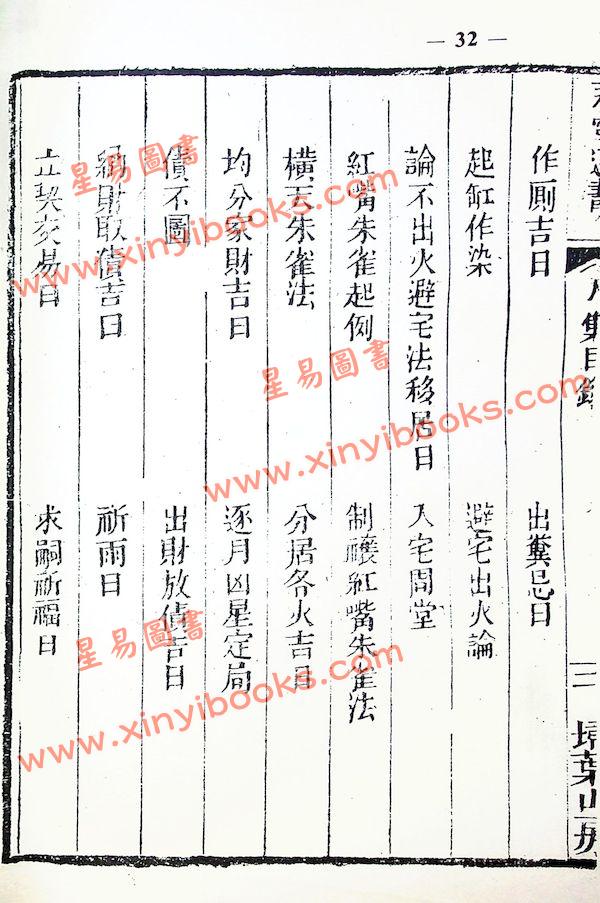 — 32 —
作厠吉日
出糞忌日
起缸作染
避宅出火論
論不出火避宅法移居日
入宅問堂
紅嘴朱雀起例
制禳紅嘴朱雀法
橫天朱雀法
分居各火吉日
均分家財吉日
逐月凶星定局
債不圖
出財放債吉日
納財取債吉日
祈雨日
立契交易日
求嗣祈福日
集目錄
二
埽葉山房
星易圖書
www.xinyibooks.com
星易圖書
www.xinyibooks.com
星易圖書
www.xinyibooks.com